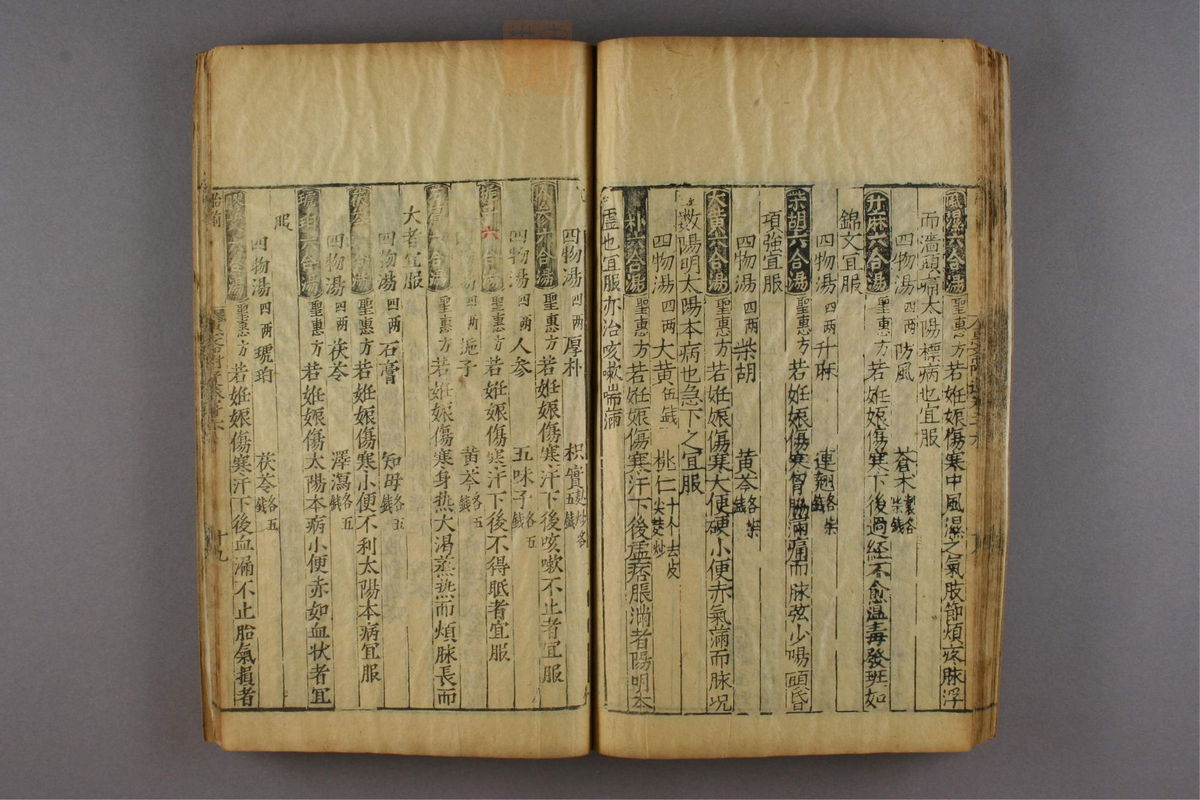 風濕六合湯聖惠方若妊娠傷寒中風濕之氣肢節煩疼脉浮
而濇頭痛太陽標病也宜服
四物湯四两防風 蒼术製各柒錢
升麻六合湯聖惠方若妊娠傷寒下後過經不愈温毒發班如
錦文宜服
四物湯四两升麻 連翹各柒錢
柴胡六合湯聖惠方若妊娠傷寒胷脇滿痛而脉弦少陽頭昏
項強宜服
四物湯四两柴胡 黄芩各柒錢
大黄六合湯聖惠方若妊娠傷寒大便硬小便赤氣滿而脉沉
數陽明太陽本病也急下之宜服
四物湯四两大黄伍錢 桃仁十个去皮尖麸炒
朴六合湯聖惠方若妊娠傷寒汗下後虚痞脹滿者陽明本
虚也宜服亦治咳嗽喘滿
四物湯四两厚朴 枳實麸炒各五錢
六合湯聖惠方若妊娠傷寒汗下後咳嗽不止者宜服
四物湯四两人参 五味子各五錢
梔子六合湯聖惠方若妊娠傷寒汗下後不得眠者宜服
四物湯四两梔子 黄芩各五錢
石膏六合湯聖惠方若妊娠傷寒身热大渴蒸热而煩脉長而
大者宜服
四物湯四两石膏 知母各五錢
茯苓六合湯聖惠方若妊娠傷寒小便不利太陽本病宜服
四物湯四两茯苓 澤瀉各五錢
琥珀六合湯聖惠方若妊娠傷太陽本病小便赤如血状者宜
服
四物湯四两琥珀 茯苓各五錢
六合湯聖惠方若妊娠傷寒汗下後血漏不止胎氣損者
胎前
十九